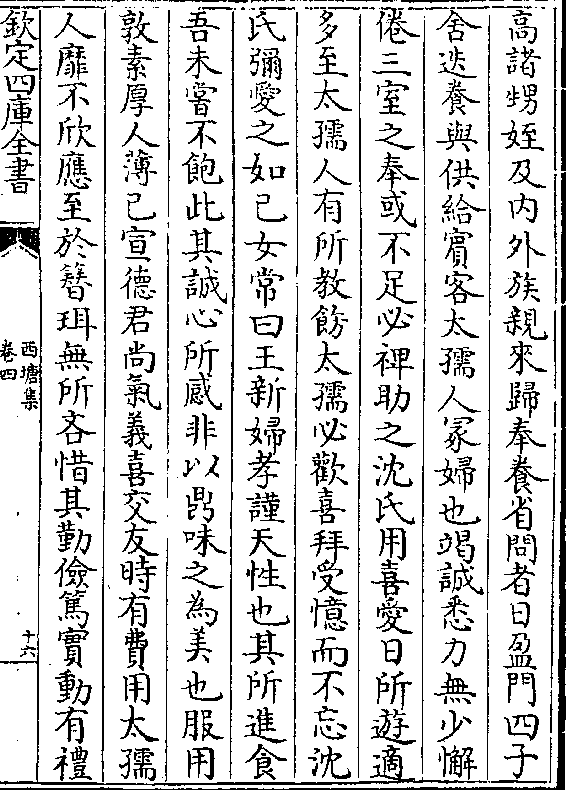 高諸甥姪及内外族親來歸奉養省問者日盈門四子
舍迭養與供給賓客太孺人冢婦也竭誠悉力無少懈
倦三室之奉或不足必裨助之沈氏用喜愛日所遊適
多至太孺人有所教飭太孺必歡喜拜受憶而不忘沈
氏彌愛之如已女常曰王新婦孝謹天性也其所進食
吾未嘗不飽此其誠心所感非以鼎味之為美也服用
敦素厚人薄已宣德君尚氣義喜交友時有費用太孺
人靡不欣應至於簪珥無所吝惜其勤儉篤實動有禮
欽定四庫全書
西塘集
卷四
十六